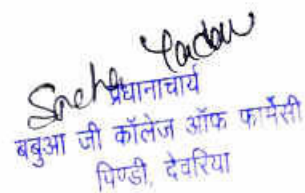 Yadav
प्रधानाचार्य
बबुआ जी कॉलेज ऑफ फार्मेसी
पिण्डी, देवरिया